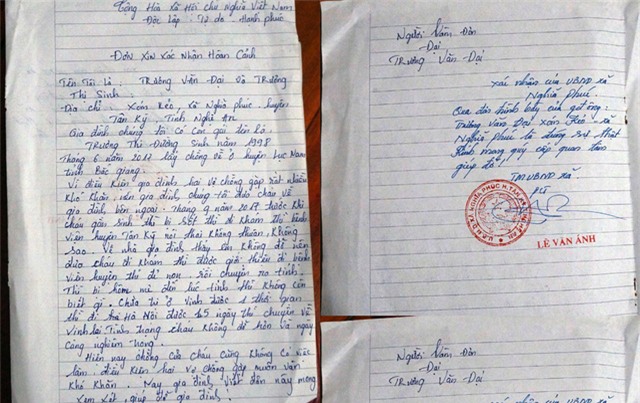 Cộng Hòa Xã Hội chủ Nghĩa Việt Nam
Độc Lập : Tự do - Hạnh phúc
Đơn Xin Xác Nhận Hoàn Cảnh
Tên Tôi Là : TRương Văn Đại Và TRương
Thị Sinh
Địa chỉ : Xóm Kẻo, Xã Nghĩa phúc, huyện
Tân Kỳ, Tỉnh Nghệ An
Gia đình chúng tôi có Con gái tên là,
TRương Thị Dương Sinh năm 1998
Tháng 6 năm 2017 lấy chồng về ở huyện Lục Nam
tỉnh Bắc giang.
Vì điều Kiện gia đình hai Vợ chồng gặp rất nhiều
Khó Khăn, nên gia đình, chúng tôi đưa cháu về
gia đình bên ngoại. Tháng 9 năm 2017 trước Khi
cháu gần sinh thì bị sốt thì đi Khám thì bệnh
viện huyện Tân Kỳ nói thai Không Khỏe, Không
Sao. Về nhà gia đình thấy em Không đỡ nên
đưa cháu đi Khám thì được giới thiệu đi bệnh
Viện huyện thì đẻ non, rồi chuyển ra tỉnh.
Thì bị hôn mê đến lúc tỉnh thì Không Còn
biết gì. Chữa trị ở Vinh được 1 thời gian
thì đi ra Hà Nội được 45 ngày thì chuyển về
Vinh lại Tình trạng cháu Không đỡ hơn và ngày
Càng nghiêm trọng.
Hiện nay chồng của cháu Cũng Không Có việc
làm, điều Kiện hai vợ chồng gặp muôn vàn
Khó Khăn. Nay gia đình viết đơn này mong
Xem xét, giúp đỡ gia đình.
Người Làm Đơn
Đại
TRương Văn Đại
Xác nhận của UBND xã
Nghĩa Phúc.
Qua đơn trình bày của gđ ông:
Trương Văn Đại xóm Kẻo xã
Nghĩa Phúc là đúng sự thật
Kính mong quý cấp quan tâm
giúp đỡ!
TM UBND xã
LÊ VĂN ÁNH
Người Làm Đơn
Đại
TRương Văn Đại